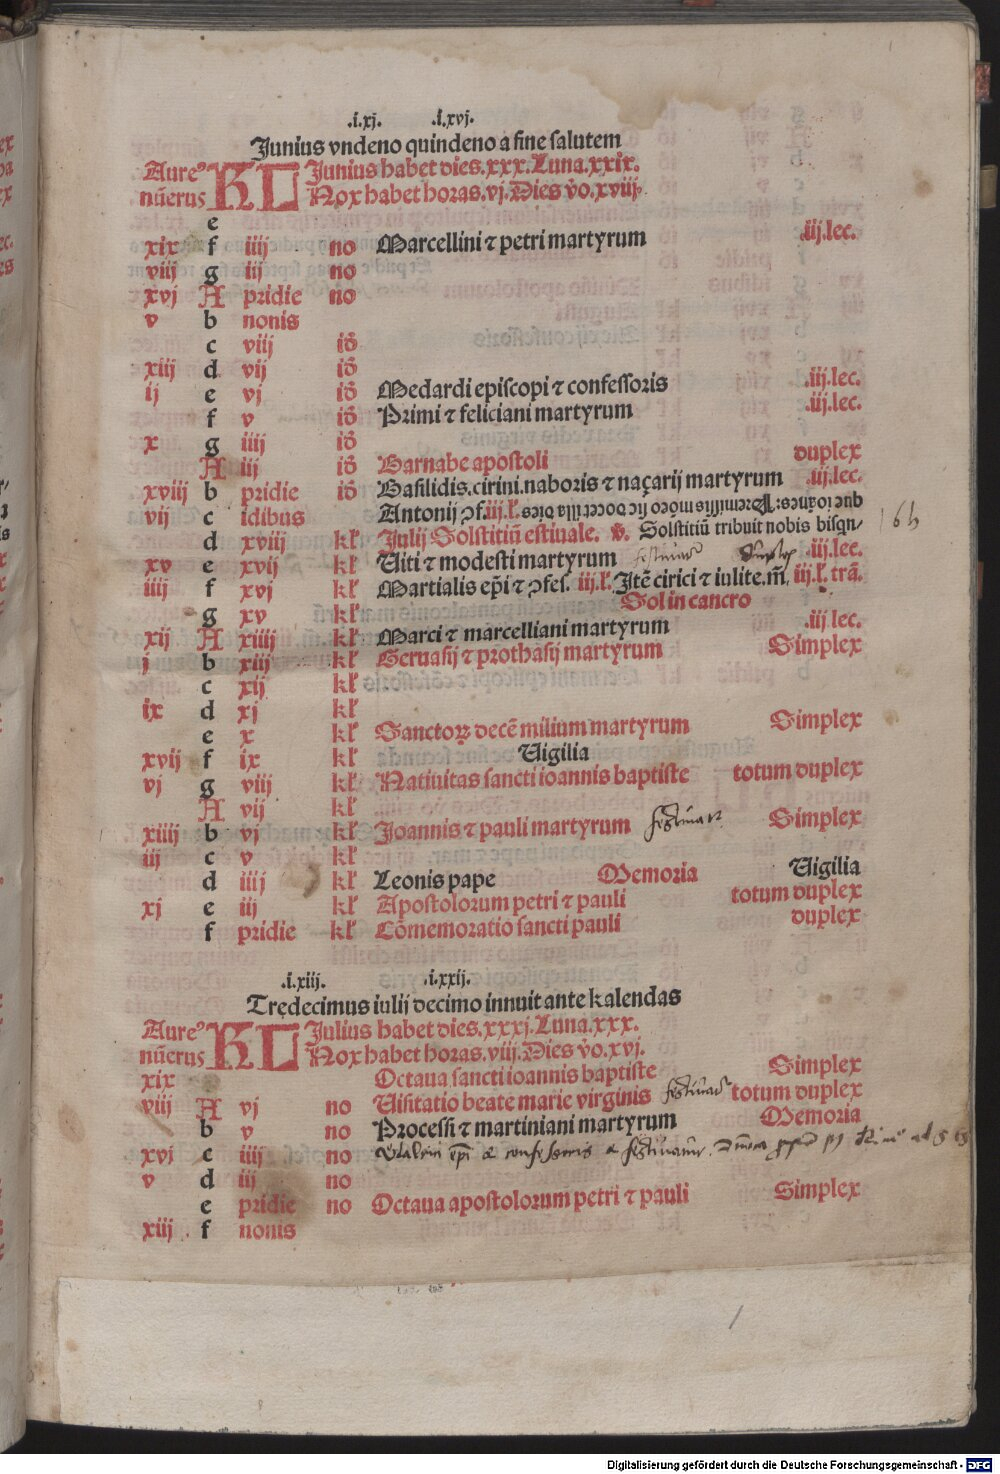 .i.xj. .i.xvj.
Junius vndeno quindeno a fine salutem
Aure⁹ KL Junius habet dies.xxx.Luna.xxix.
nūerus Nox habet horas.vj.Dies v̄o.xviij.
e
xix f iiij no Marcellini ⁊ petri martyrum .iij.lec.
viij g iij no
xvj A pridie no
v b nonis
c viij id̄
xiij d vij id̄
ij e vj id̄ Medardi episcopi ⁊ confessoris .iij.lec.
f v id̄ Primi ⁊ feliciani martyrum .iij.lec.
x g iiij id̄
A iij id̄ Barnabe apostoli duplex
xviij b pridie id̄ Basilidis.cirini.naboris ⁊ naçarij martyrum .iij.lec.
vij c idibus Antonij ɔf.iij.ł. que iohnes: Decemillis modo hic docet illa dies
d xviij kł Julij Solstitiū estiuale. v̄. Solstitiū tribuit nobis bisqn-
xv e xvij kł Uiti ⁊ modesti martyrum .iij.lec.
iiij f xvj kł Martialis ep̄i ⁊ ɔfes. iij.ł. Jtē cirici ⁊ iulite.m̄. iij.ł. trā.
g xv kł Sol in cancro
xij A xiiij kł Marci ⁊ marcelliani martyrum .iij.lec.
j b xiij kł Geruasij ⁊ prothasij martyrum Simplex
c xij kł
ix d xj kł
e x kł Sanctoꝝ decē milium martyrum Simplex
xvij f ix kł Uigilia
vj g viij kł Natiuitas sancti ioannis baptiste totum duplex
A vij kł
xiiij b vj kł Joannis ⁊ pauli martyrum Simplex
iij c v kł
d iiij kł Leonis pape Memoria Uigilia
xj e iij kł Apostolorum petri ⁊ pauli totum duplex
f pridie kł Cōmemoratio sancti pauli duplex
.i.xiij. .i.xxij.
Tredecimus iulij decimo innuit ante kalendas
Aure⁹ KL Julius habet dies.xxxj.Luna.xxx.
nūerus Nox habet horas.viij.Dies v̄o.xvj.
xix Octaua sancti ioannis baptiste Simplex
viij A vj no Uisitatio beate marie virginis totum duplex
b v no Processi ⁊ martiniani martyrum Memoria
xvj c iiij no
v d iij no
e pridie no Octaua apostolorum petri ⁊ pauli Simplex
xiij f nonis
Digitalisierung gefördert durch die Deutsche Forschungsgemeinschaft - DFG